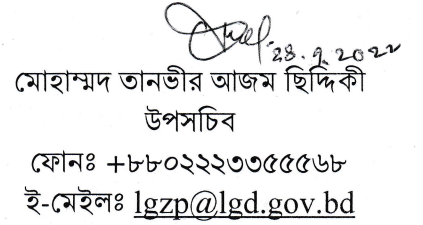 ২৪.৭.২০২২
মোহাম্মদ তানভীর আজম ছিদ্দিকী
উপসচিব
ফোনঃ +৮৮০২২২৩৩৫৫৫৬৮
ই-মেইলঃ lgzp@lgd.gov.bd